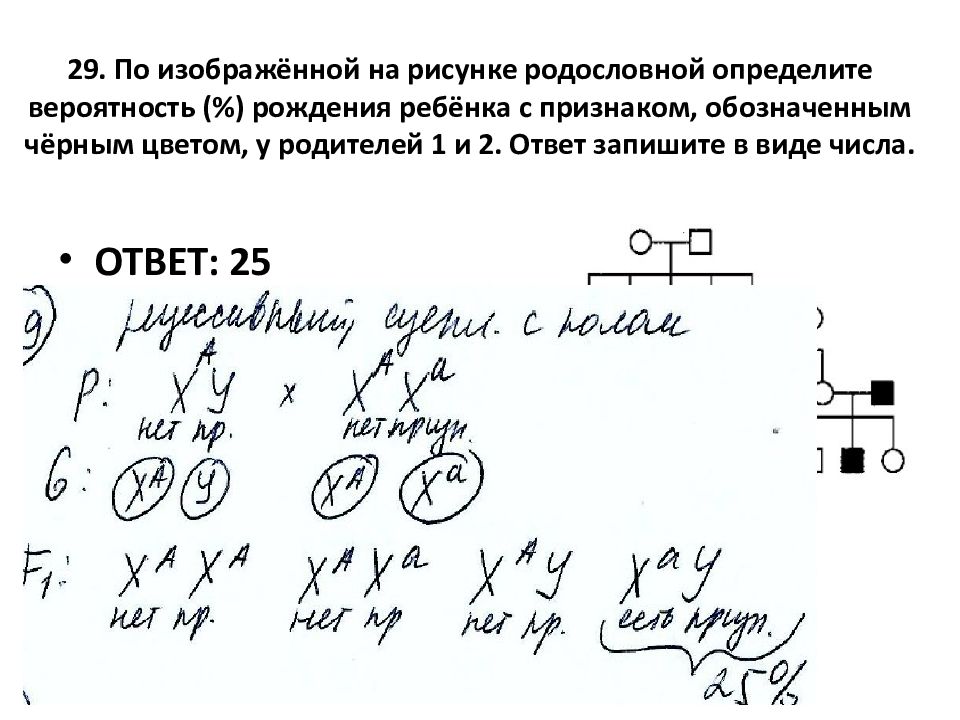 29. По изображённой на рисунке родословной определите
вероятность (%) рождения ребёнка с признаком, обозначенным
чёрным цветом, у родителей 1 и 2. Ответ запишите в виде числа.
• ОТВЕТ: 25
9) рецессивный, сцепл. с полом
P: X^A У х X^A X^a
нет пр. нет призн.
G: X^A У X^A X^a
F₁: X^A X^A X^A X^a X^A У X^a У
нет пр. нет пр нет пр. есть призн.
25%